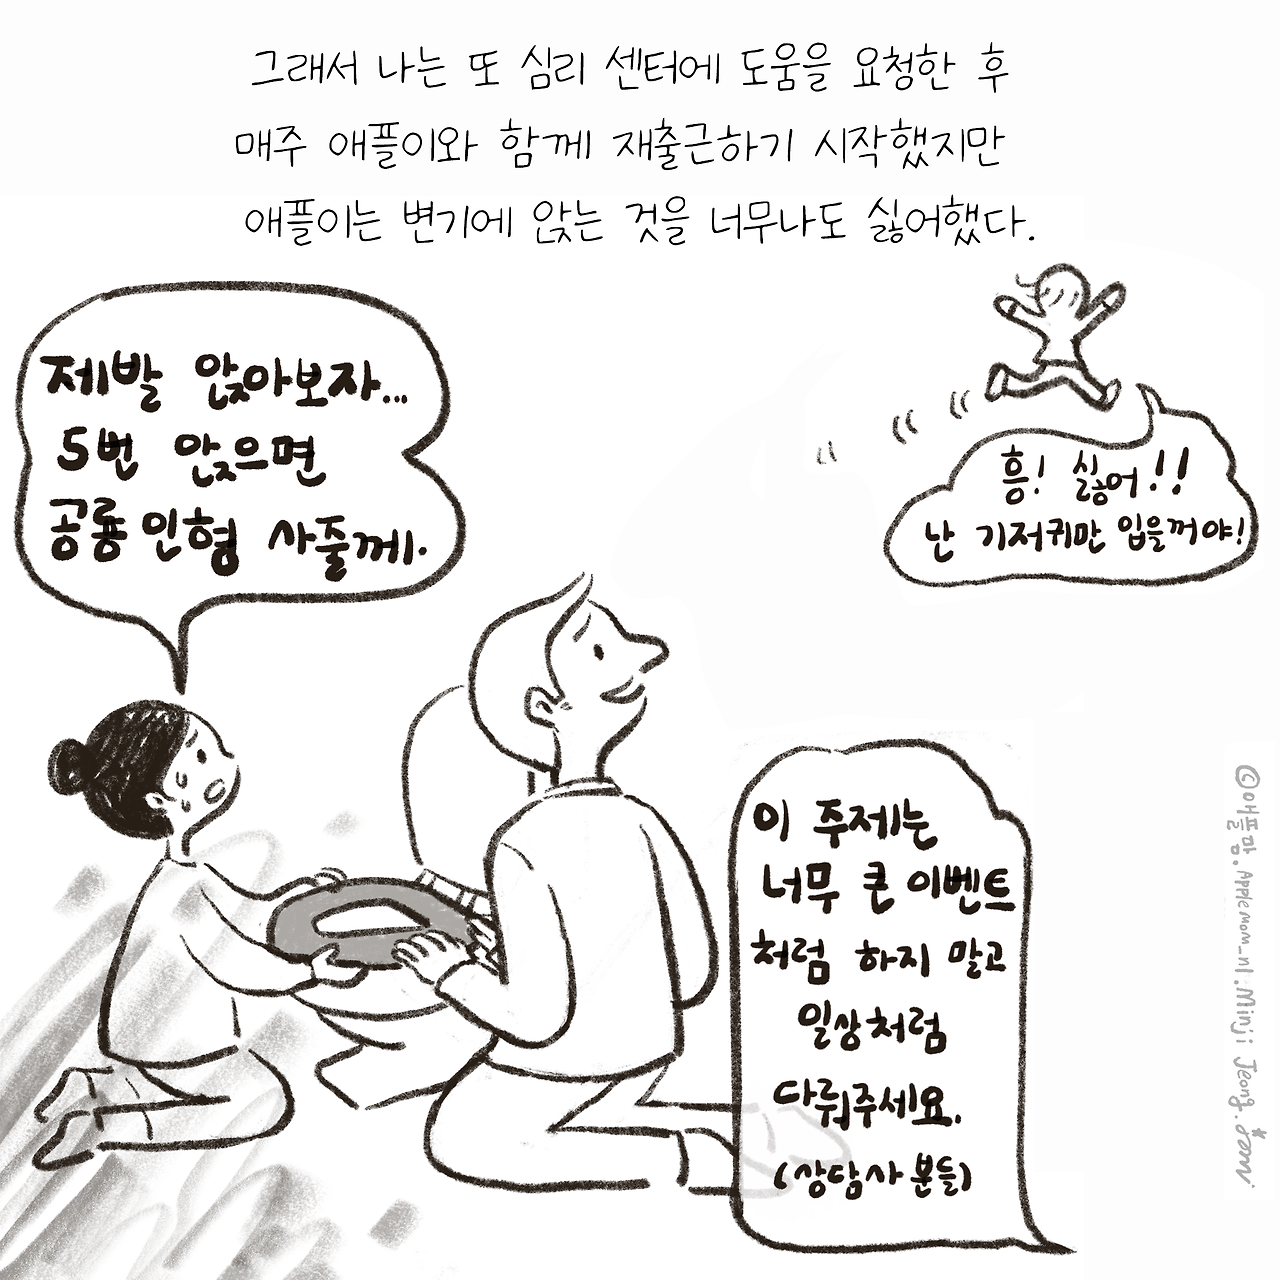 그래서 나는 또 심리 센터에 도움을 요청한 후
매주 애플이와 함께 재출근하기 시작했지만
애플이는 변기에 앉는 것을 너무나도 싫어했다.
제발 앉아보자...
5번 앉으면
공룡 인형 사줄께.
흥! 싫어!!
난 기저귀만 입을꺼야!
이 주제는
너무 큰 이벤트
처럼 하지 말고
일상처럼
다뤄주세요.
(상담사 분들)
©애플맘.Applemom_nl.Minji Jeong.